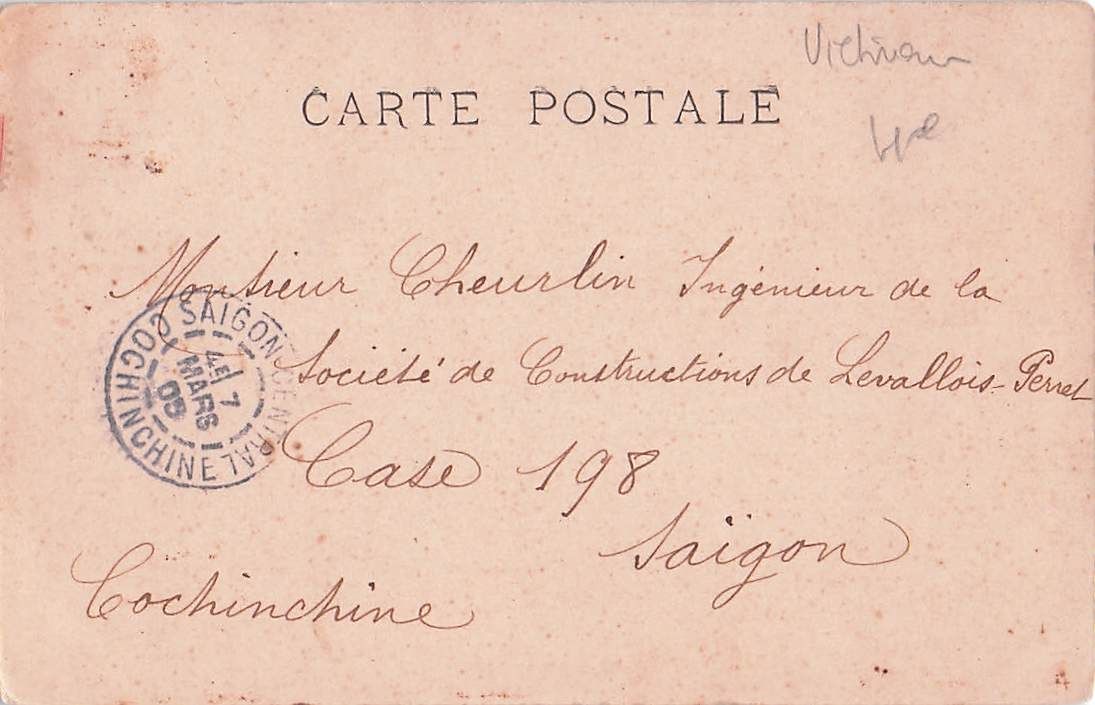 CARTE POSTALE
Monsieur Cheurlin Ingénieur de la
Société de Constructions de Levallois-Perret
Case 198
Saïgon
Cochinchine
SAIGON CENTRAL
COCHINCHINE
4E
7
MARS